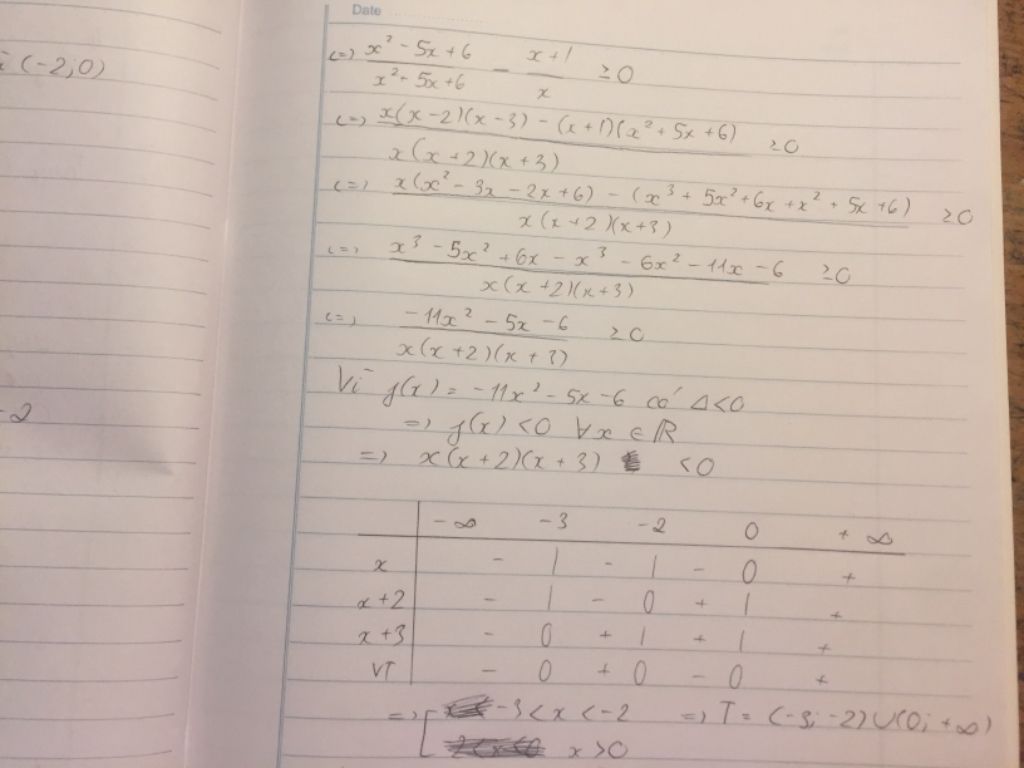 Date
(-2;0)
-2
<=> (x² - 5x + 6)/(x² + 5x + 6) - (x + 1)/x ≥ 0
<=> (x(x - 2)(x - 3) - (x + 1)(x² + 5x + 6))/(x(x + 2)(x + 3)) ≥ 0
<=> (x(x² - 3x - 2x + 6) - (x³ + 5x² + 6x + x² + 5x + 6))/(x(x + 2)(x + 3)) ≥ 0
<=> (x³ - 5x² + 6x - x³ - 6x² - 11x - 6)/(x(x + 2)(x + 3)) ≥ 0
<=> (-11x² - 5x - 6)/(x(x + 2)(x + 3)) ≥ 0
Vì f(x) = -11x² - 5x - 6 có Δ < 0
=> f(x) < 0 ∀x ∈ ℝ
=> x(x + 2)(x + 3) < 0
-∞ -3 -2 0 +∞
x - | - | - 0 +
x+2 - | - 0 + | +
x+3 - 0 + | + | +
VT - 0 + 0 - 0 +
=> [ -3 < x < -2 => T = (-3; -2) ∪ (0; +∞)
x > 0